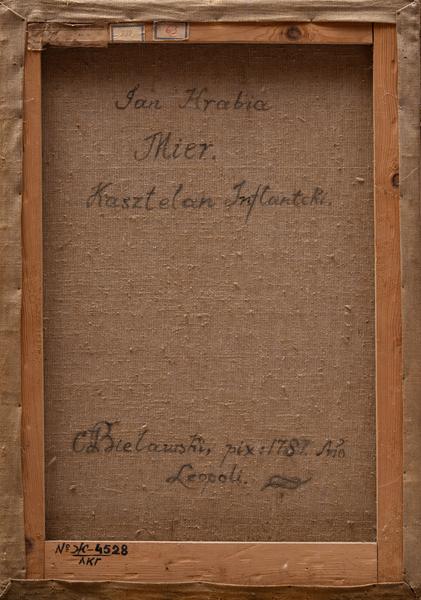 63
Jan Hrabia
Mier.
Kasztelan Inflantcki.
Bielawski, pix: 1787. Ano
Leopoli.
№ Ж-4528
ЛКГ